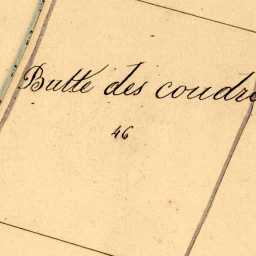 Butte des coudre
46